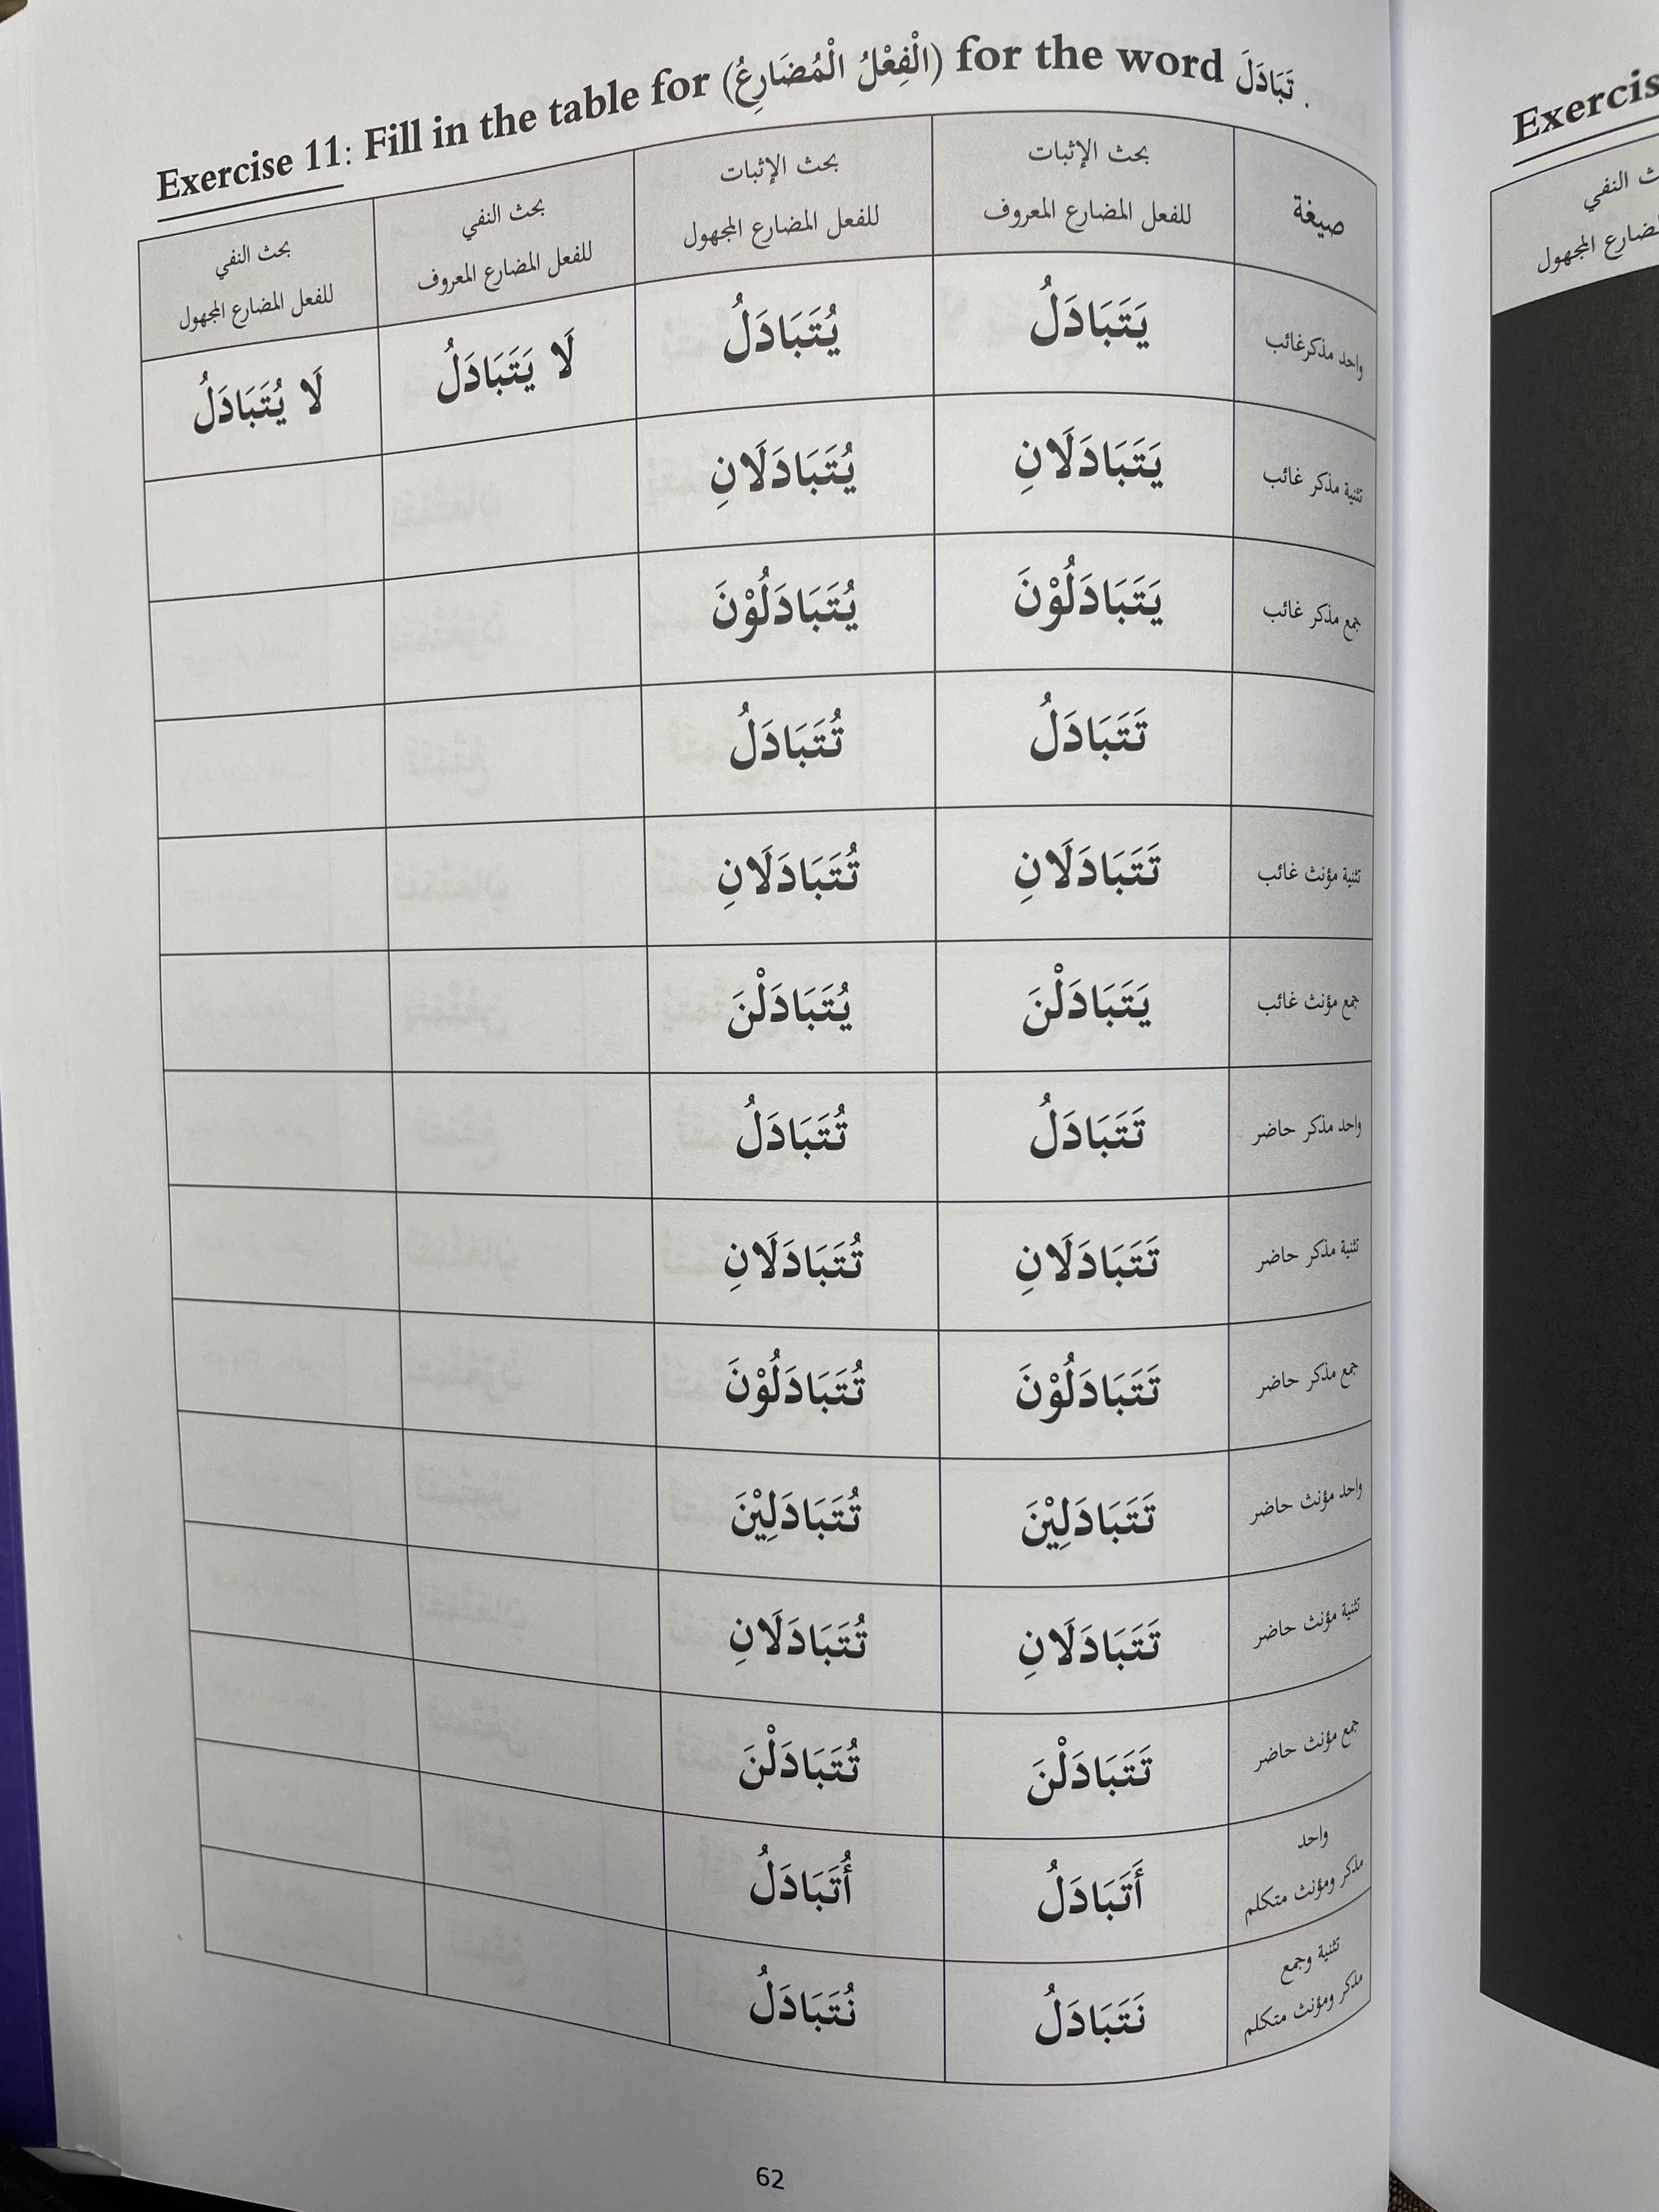 Exercise 11: Fill in the table for (الْفِعْلُ الْمُضَارِعُ) for the word تَبَادَلَ .
صيغة
بحث الإثبات
للفعل المضارع المعروف
بحث الإثبات
للفعل المضارع المجهول
بحث النفي
للفعل المضارع المعروف
بحث النفي
للفعل المضارع المجهول
واحد مذكرغائب
يَتَبَادَلُ
يُتَبَادَلُ
لَا يَتَبَادَلُ
لَا يُتَبَادَلُ
تثنية مذكر غائب
يَتَبَادَلَانِ
يُتَبَادَلَانِ
جمع مذكر غائب
يَتَبَادَلُوْنَ
يُتَبَادَلُوْنَ
تَتَبَادَلُ
تُتَبَادَلُ
تثنية مؤنث غائب
تَتَبَادَلَانِ
تُتَبَادَلَانِ
جمع مؤنث غائب
يَتَبَادَلْنَ
يُتَبَادَلْنَ
واحد مذكر حاضر
تَتَبَادَلُ
تُتَبَادَلُ
تثنية مذكر حاضر
تَتَبَادَلَانِ
تُتَبَادَلَانِ
جمع مذكر حاضر
تَتَبَادَلُوْنَ
تُتَبَادَلُوْنَ
واحد مؤنث حاضر
تَتَبَادَلِيْنَ
تُتَبَادَلِيْنَ
تثنية مؤنث حاضر
تَتَبَادَلَانِ
تُتَبَادَلَانِ
جمع مؤنث حاضر
تَتَبَادَلْنَ
تُتَبَادَلْنَ
واحد
مذكر ومؤنث متكلم
أَتَبَادَلُ
أُتَبَادَلُ
تثنية وجمع
مذكر ومؤنث متكلم
نَتَبَادَلُ
نُتَبَادَلُ
62
Exercis
النفي
المجهول